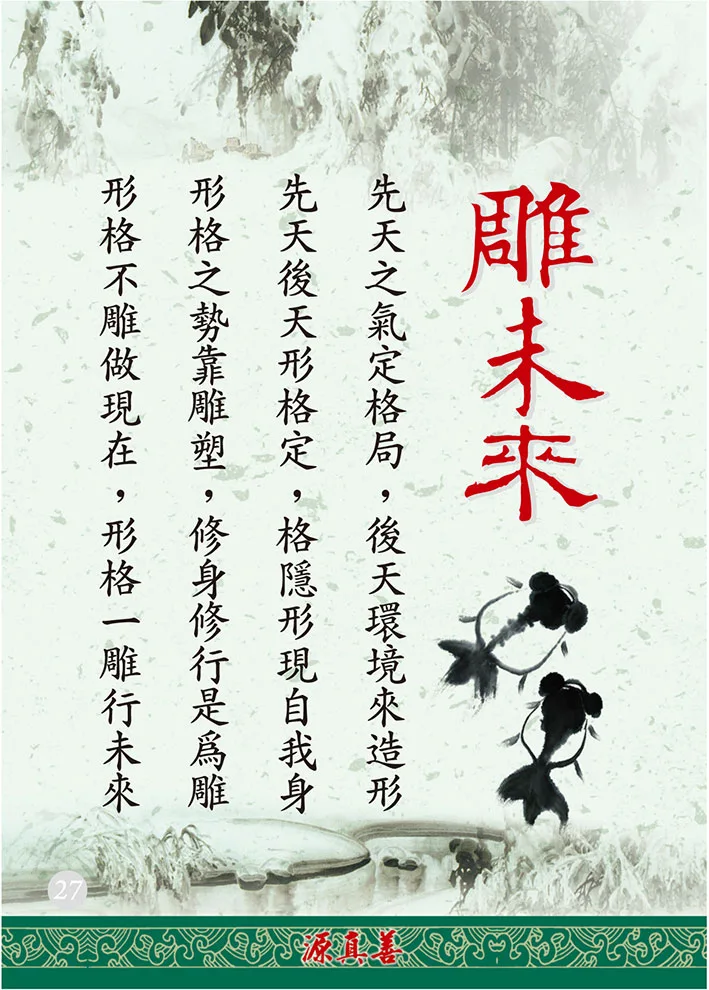 雕未來
先天之氣定格局，後天環境來造形
先天後天形格定，格隱形現自我身
形格之勢靠雕塑，修身修行是爲雕
形格不雕做現在，形格一雕行未來
27
源真善